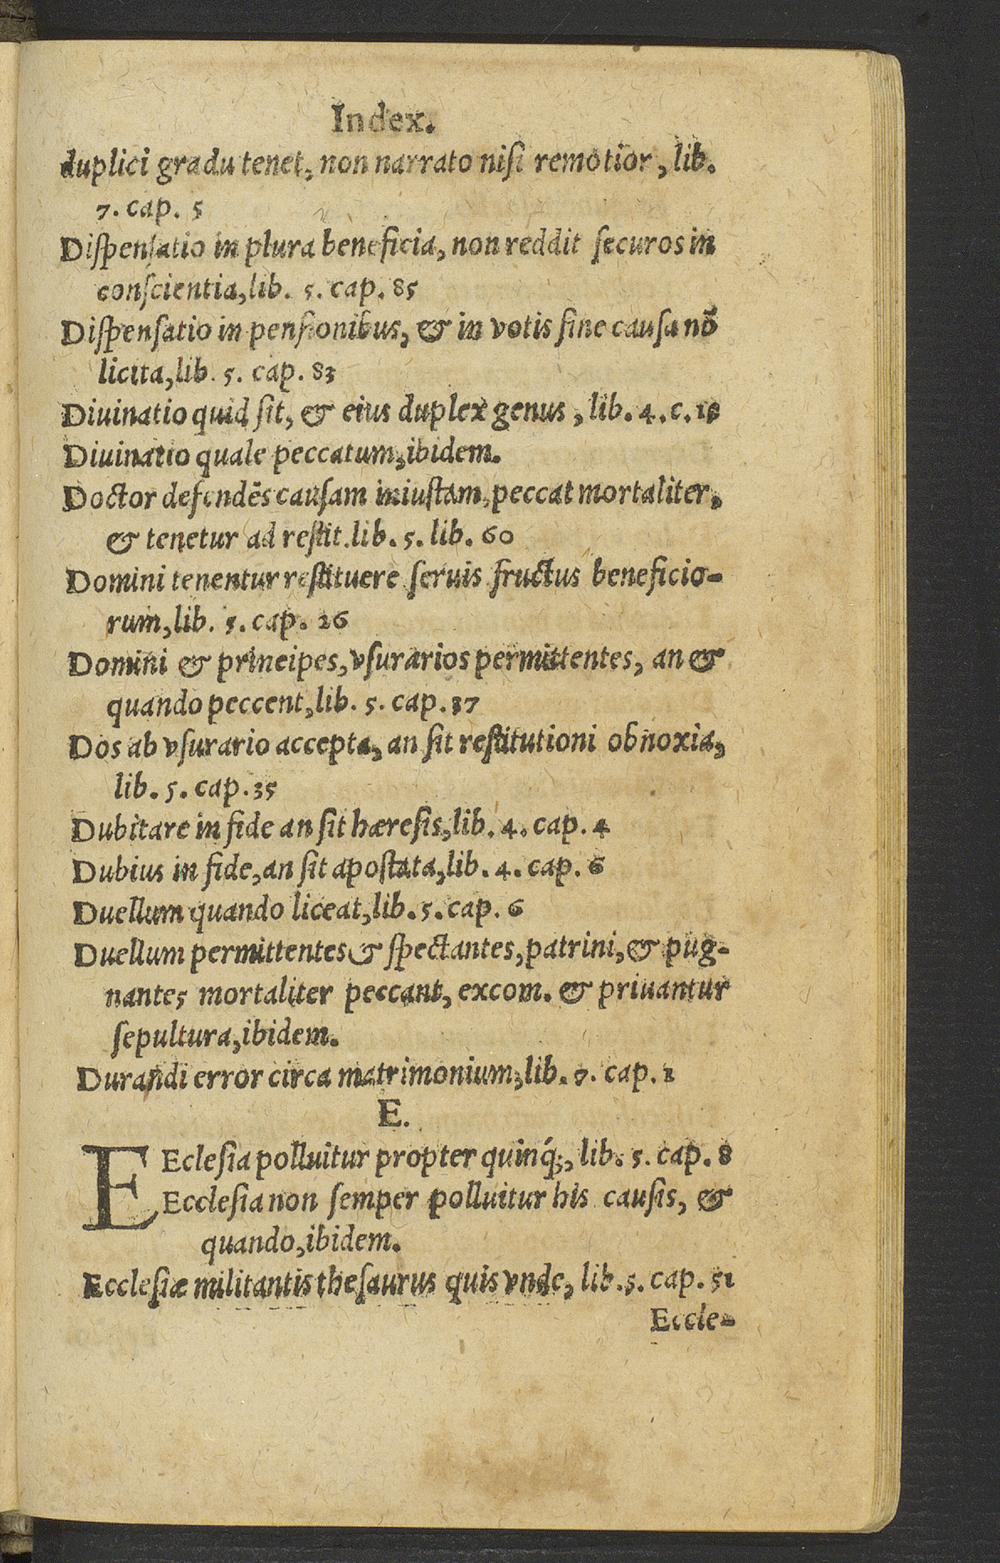 Index.
duplici gradu tenet, non narrato nisi remotior, lib.
7. cap. 5
Dispensatio in plura beneficia, non reddit securos in
conscientia, lib. 5. cap. 85
Dispensatio in pensionibus, & in votis sine causa nō
licita, lib. 5. cap. 83
Diuinatio quid sit, & eius duplex genus, lib. 4. c. 18
Diuinatio quale peccatum, ibidem.
Doctor defendēs causam iniustam, peccat mortaliter,
& tenetur ad restit. lib. 5. lib. 60
Domini tenentur restituere seruis fructus beneficio-
rum, lib. 5. cap. 26
Domini & principes, vsurarios permittentes, an &
quando peccent, lib. 5. cap. 37
Dos ab vsurario accepta, an sit restitutioni obnoxia,
lib. 5. cap. 35
Dubitare in fide an sit hæresis, lib. 4. cap. 4
Dubius in fide, an sit apostata, lib. 4. cap. 6
Duellum quando liceat, lib. 5. cap. 6
Duellum permittentes & spectantes, patrini, & pug-
nantes mortaliter peccant, excom. & priuantur
sepultura, ibidem.
Durandi error circa matrimonium, lib. 7. cap. 1
E.
EEclesia polluitur propter quinq́;, lib. 5. cap. 8
Ecclesia non semper polluitur his causis, &
quando, ibidem.
Ecclesiæ militantis thesaurus quis vnde, lib. 5. cap. 51
Eccle-